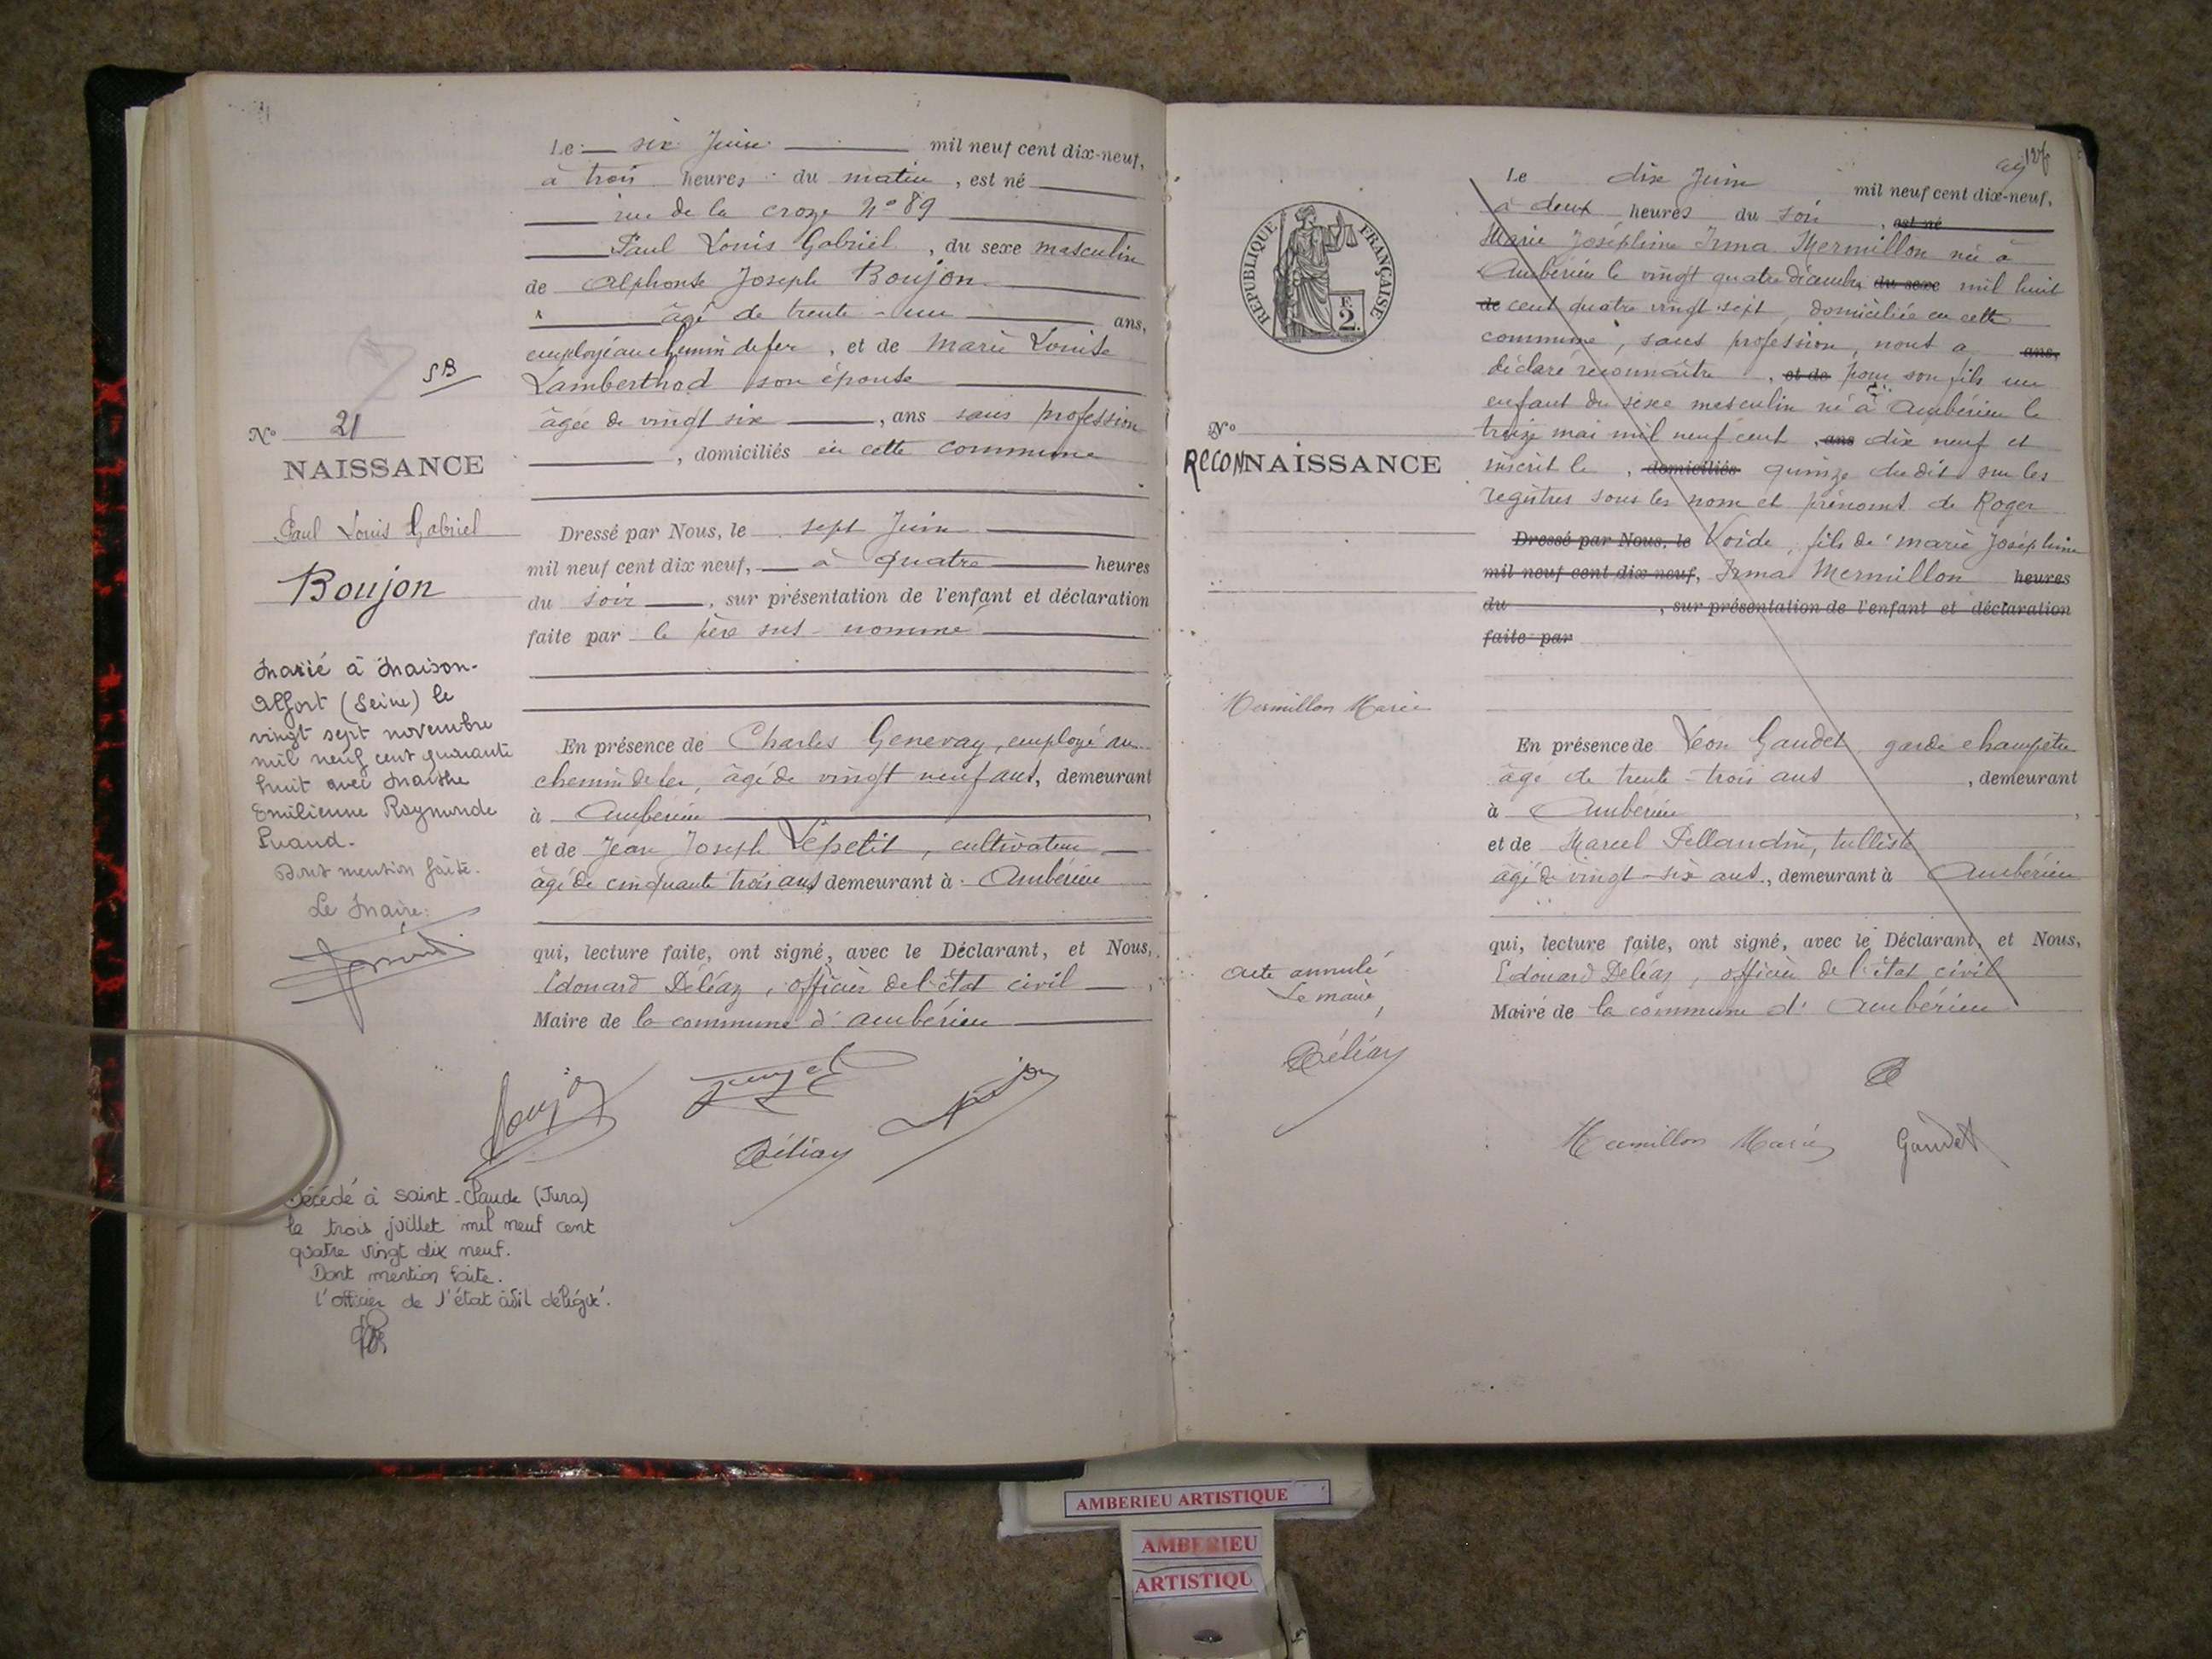 Le six Juin mil neuf cent dix-neuf,
à trois heures du matin, est né
rue de la croze N° 89
Paul Louis Gabriel, du sexe masculin
de Alphonse Joseph Boujon
âgé de trente-un ans,
employé au chemin de fer, et de Marie Louise
Lamberthod son épouse
âgée de vingt six, ans sans profession
, domiciliés en cette commune
Dressé par Nous, le sept Juin
mil neuf cent dix neuf, à quatre heures
du soir, sur présentation de l'enfant et déclaration
faite par le père sus-nommé
En présence de Charles Genevay, employé au
chemin de fer, âgé de vingt neuf ans, demeurant
à Ambérieu
et de Jean Joseph Lépetit, cultivateur
âgé de cinquante trois ans demeurant à Ambérieu
qui, lecture faite, ont signé, avec le Déclarant, et Nous,
Edouard Déléaz, officier de l'état civil
Maire de la commune d'Ambérieu
Boujon
Déléaz
SB
N° 21
NAISSANCE
Paul Louis Gabriel
Boujon
Marié à Maison-
Alfort (Seine) le
vingt sept novembre
mil neuf cent quarante
huit avec Marthe
Emilienne Raymonde
Dont mention faite.
Le Maire:
Décédé à Saint-Claude (Jura)
le trois juillet mil neuf cent
quatre vingt dix neuf.
Dont mention faite.
L'officier de l'état civil délégué.
126
RÉPUBLIQUE FRANÇAISE
F.
2.
Le dix Juin mil neuf cent dix-neuf,
à deux heures du soir, est né
Marie Joséphine Irma Mermillon née à
Ambérieu le vingt quatre décembre du sexe mil huit
de cent quatre vingt sept, domiciliée en cette
commune, sans profession, nous a ans,
déclaré reconnaître, et de pour son fils un
enfant du sexe masculin né à Ambérieu le
treize mai mil neuf cent, ans dix neuf et
inscrit le, domiciliés quinze dudit sur les
registres sous les nom et prénoms de Roger
Dressé par Nous, le Voide, fils de Marie Joséphine
mil neuf cent dix neuf, Irma Mermillon heures
du , sur présentation de l'enfant et déclaration
faite par
En présence de Léon Gaudet, garde champêtre
âgé de trente-trois ans, demeurant
à Ambérieu
et de Marcel Pellandin, tulliste
âgé de vingt-six ans, demeurant à Ambérieu
qui, lecture faite, ont signé, avec le Déclarant, et Nous,
Edouard Déléaz, officier de l'état civil
Maire de la commune d'Ambérieu
Mermillon Marie
Gaudet
N°
RECONNAISSANCE
Mermillon Marie
Acte annulé
Le maire,
Déléaz
AMBERIEU ARTISTIQUE
AMBERIEU
ARTISTIQU